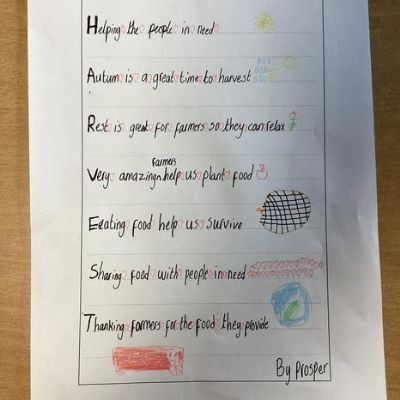 Helping the people in need
Autum is a great time to harvest
Rest is great for farmers so they can relax
farmers
Very amazing help us plant food
Eating food help us survive
Sharing food with people in need
Thanking farmers for the food they provide
By Prosper